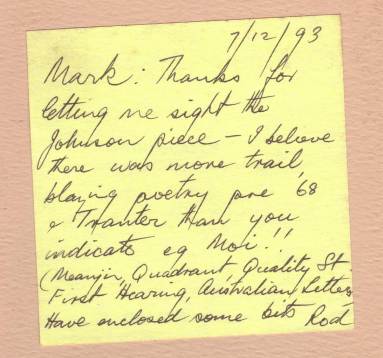 7/12/93
Mark: Thanks for
letting me sight the
Johnson piece – I believe
there was more trail
blazing poetry pre '68
& Tranter than you
indicate eg Moi!!
(Meanjin, Quadrant, Quality St.
First Hearing, Australian Letters
Have enclosed some bits Rod